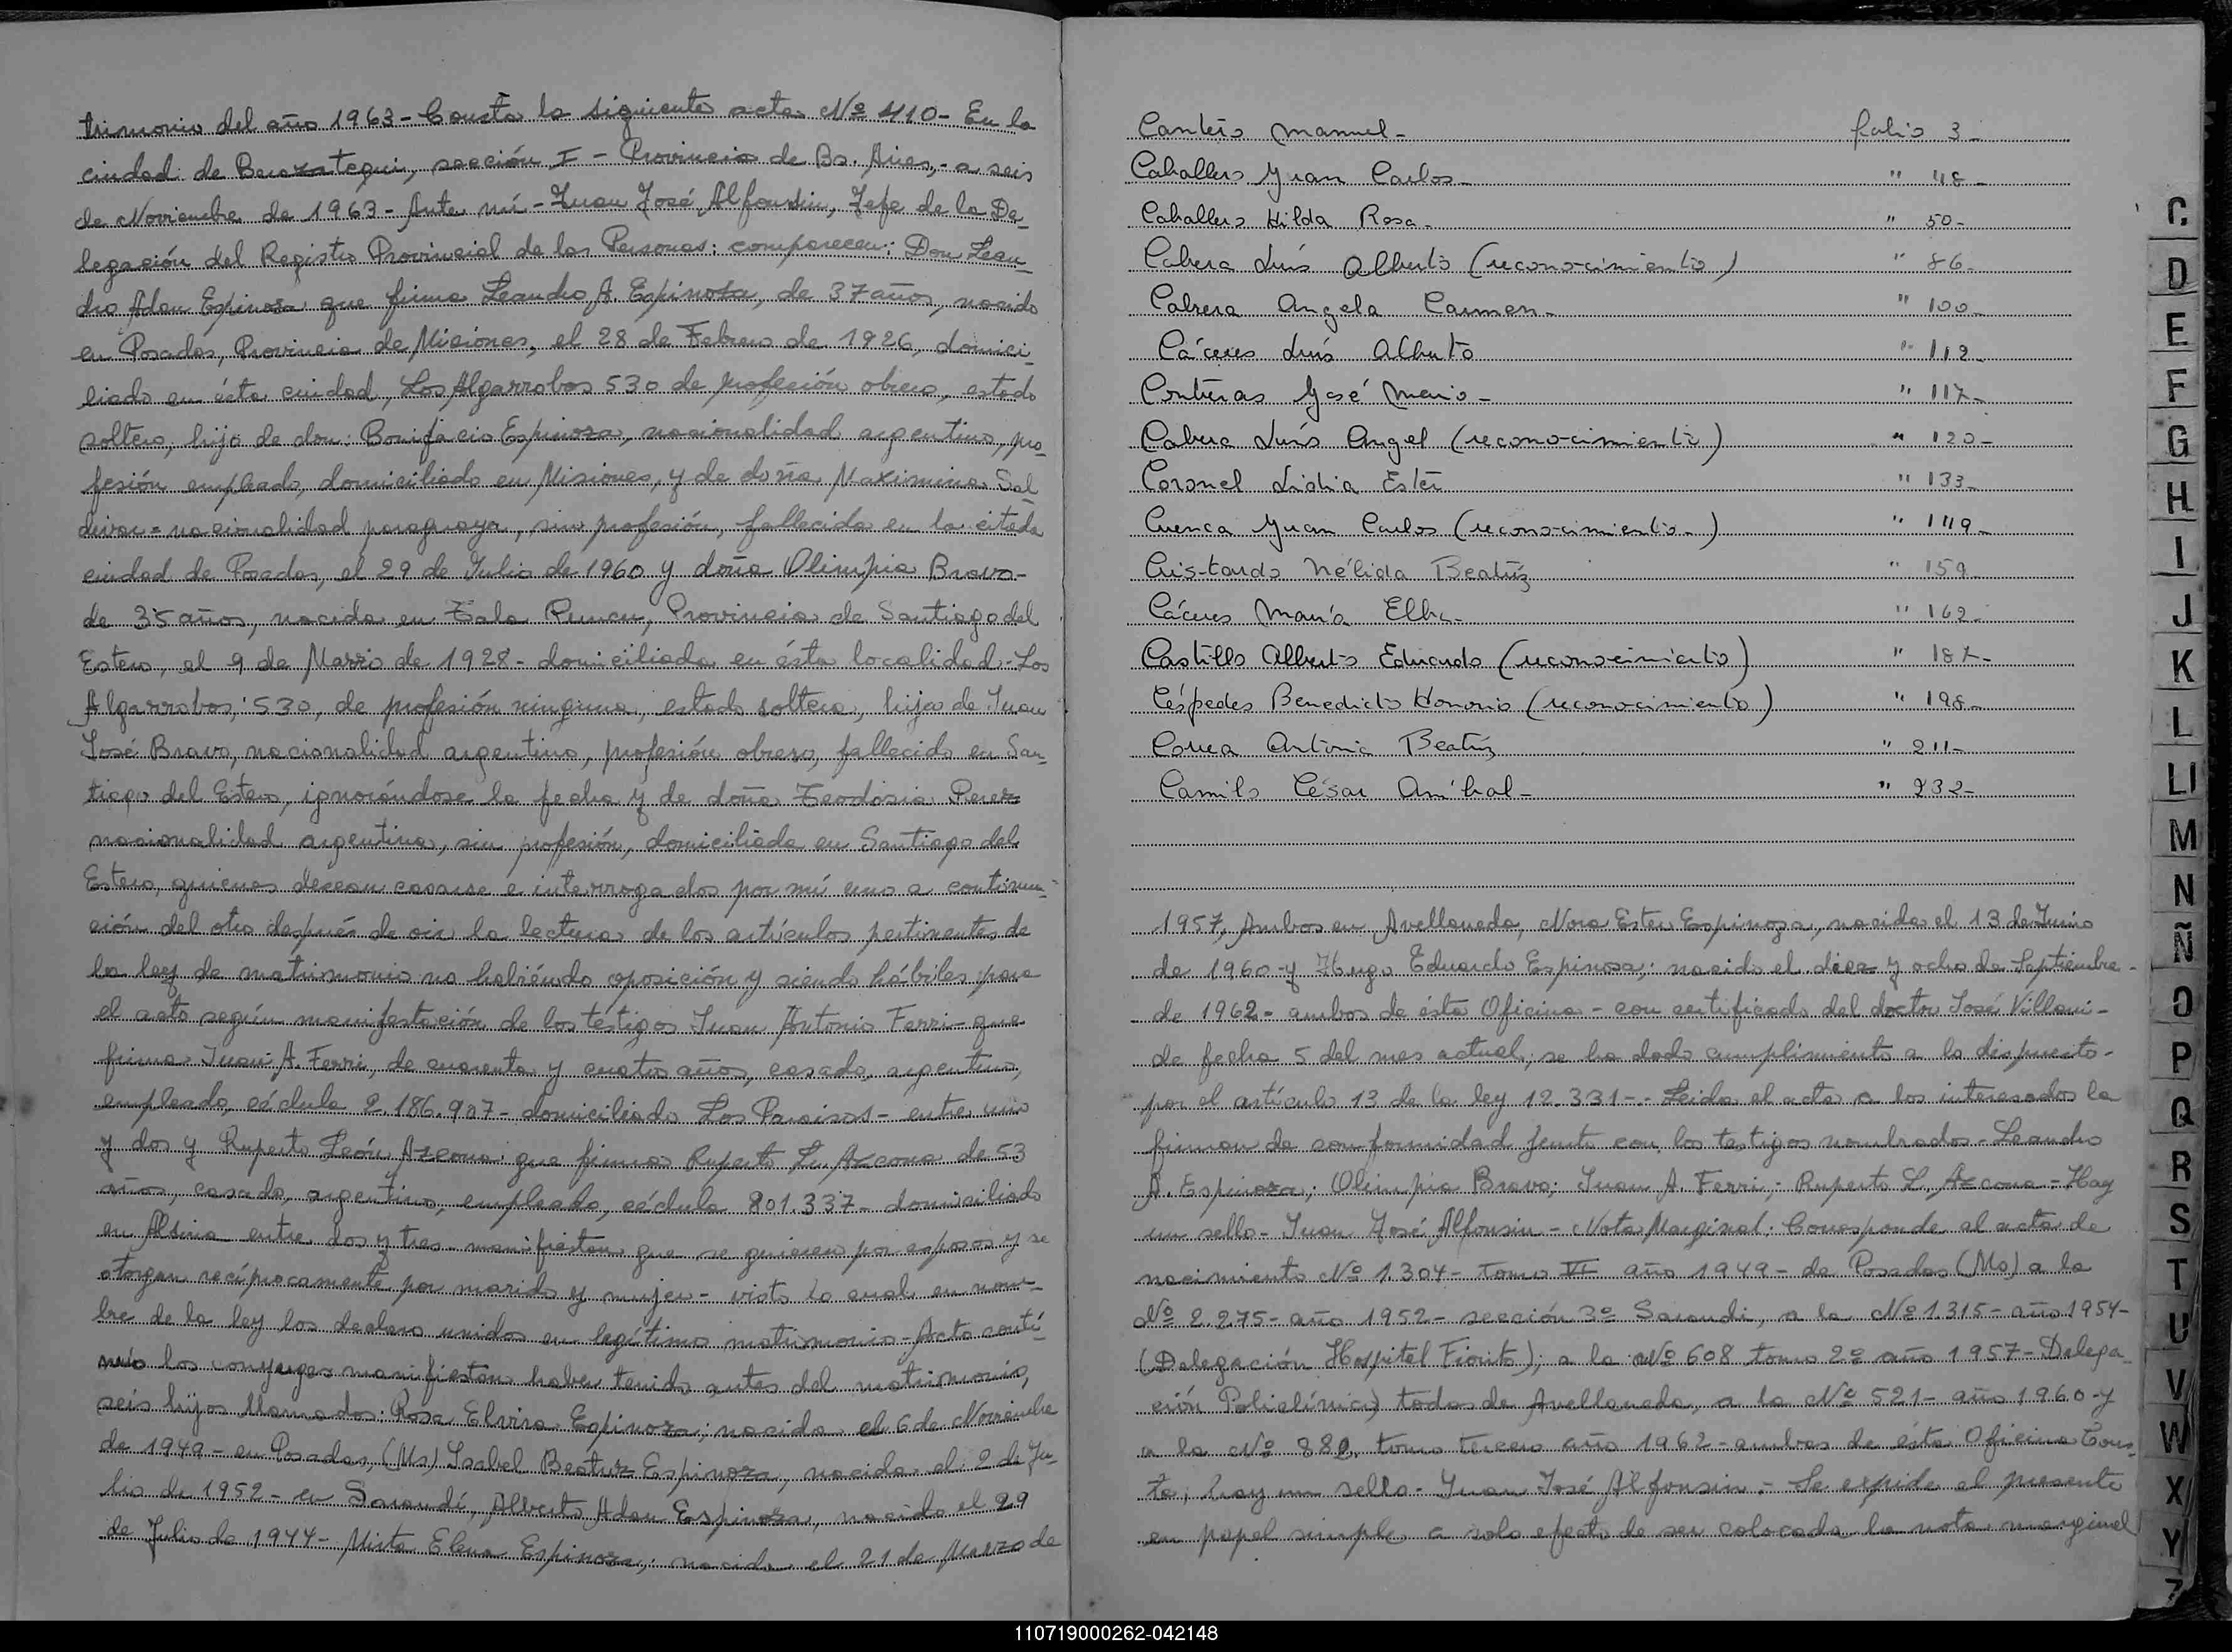 trimonio del año 1963 - Consta la siguiente acta Nº 410 - En la
ciudad de Berazategui, sección I - Provincia de Bs. Aires, - a seis
de Noviembre de 1963 - Ante mí - Juan José Alfonsin, Jefe de la De_
legación del Registro Provincial de las Personas: comparecen: Don Lean_
dro Adan Espinoza que firma Leandro A. Espinoza, de 37 años, nacido
en Posadas, Provincia de Misiones, el 28 de Febrero de 1926, domici_
liado en ésta ciudad, Los Algarrobos 530 de profesión obrero, estado
soltero, hijo de don: Bonifacio Espinoza, nacionalidad argentino, pro_
fesión empleado, domiciliado en Misiones, y de doña Maximina Sal_
divar = nacionalidad paraguaya, sin profesión, fallecida en la citada
ciudad de Posadas, el 29 de Julio de 1960 y doña Olimpia Bravo -
de 35 años, nacida en Tala Provincia de Santiago del
Estero, el 9 de Marzo de 1928 - domiciliada en ésta localidad - Los
Algarrobos, 530, de profesión ninguna, estado soltera, hija de Juan
José Bravo, nacionalidad argentino, profesión obrero, fallecido en San_
tiago del Estero, ignorándose la fecha y de doña Teodosia Perez
nacionalidad argentina, sin profesión, domiciliada en Santiago del
Estero, quienes desean casarse e interrogados por mí uno a continua_
ción del otro después de oir la lectura de los artículos pertinentes de
la ley de matrimonio no habiendo oposición y siendo hábiles para
el acto según manifestación de los testigos Juan Antonio Ferri - que
firma Juan A. Ferri, de cuarenta y cuatro años, casado, argentino,
empleado, cédula 2.186.907 - domiciliado Los Paraisos - entre uno
y dos y Ruperto León Azcona que firma Ruperto L. Azcona de 53
años, casado, argentino, empleado, cédula 801.337 - domiciliado
en Alsina entre dos y tres - manifiestan que se quieren por esposos y se
otorgan recíprocamente por marido y mujer - visto lo cual en nom-
bre de la ley los declaro unidos en legítimo matrimonio - Acto contí_
nuo los conyuges manifiestan haber tenido antes del matrimonio,
seis hijos llamados: Rosa Elvira Espinoza; nacida el 6 de Noviembre
de 1949 - en Posadas, (Ms) Isabel Beatriz Espinoza, nacida el 2 de Ju_
lio de 1952 - en Sarandí, Alberto Adan Espinoza, nacido el 29
de Julio de 1944 - Mirta Elena Espinoza; nacida el 21 de Marzo de
Cantero Manuel - folio 3 -
Caballero Juan Carlos - " 48 -
Caballero Hilda Rosa - " 50 -
Cabrera Luís Alberto (reconocimiento) " 86 -
Cabrera Angela Carmen - " 100 -
Cáceres Luís Alberto " 112 -
Contreras José Mario - " 117 -
Cabrera Luís Angel (reconocimiento) " 120 -
Coronel Lidia Ester " 133 -
Cuenca Juan Carlos (reconocimiento -) " 149 -
Cristando Nélida Beatríz " 159 -
Cáceres María Elba - " 162 -
Castillo Alberto Eduardo (reconocimiento) " 187 -
Céspedes Benedicto Honorio (reconocimiento) " 198 -
Correa Antonia Beatríz " 211 -
Camilo César Aníbal - " 232 -
1957, Ambos en Avellaneda, Nora Ester Espinoza, nacida el 13 de Junio
de 1960 - y Hugo Eduardo Espinoza; nacido el diez y ocho de Septiembre -
de 1962 - ambos de ésta Oficina - con certificado del doctor José Villani -
de fecha 5 del mes actual, se ha dado cumplimiento a lo dispuesto -
por el artículo 13 de la ley 12.331 - - Leida el acta a los interesados la
firman de conformidad junto con los testigos nombrados - Leandro
A. Espinoza; Olimpia Bravo; Juan A. Ferri; - Ruperto L. Azcona - Hay
un sello - Juan José Alfonsin - Nota Marginal: Corresponde al acta de
nacimiento Nº 1.304 - tomo VI año 1949 - de Posadas (Ms) a la
Nº 2.275 - año 1952 - sección 3º Sarandi, a la Nº 1.315 - año 1954 -
(Delegación Hospital Fiorito); a la Nº 608 tomo 2º año 1957 - Delega_
ción Policlínica) todas de Avellaneda, a la Nº 521 - año 1960 - y
a la Nº 882, tomo tercero año 1962 - ambas de ésta Oficina Cons_
ta; hay un sello - Juan José Alfonsin. - Se expide el presente
en papel simple a solo efecto de ser colocada la nota marginal
C
D
E
F
G
H
I
J
K
L
Ll
M
N
Ñ
O
P
Q
R
S
T
U
V
W
X
Y
Z
110719000262-042148